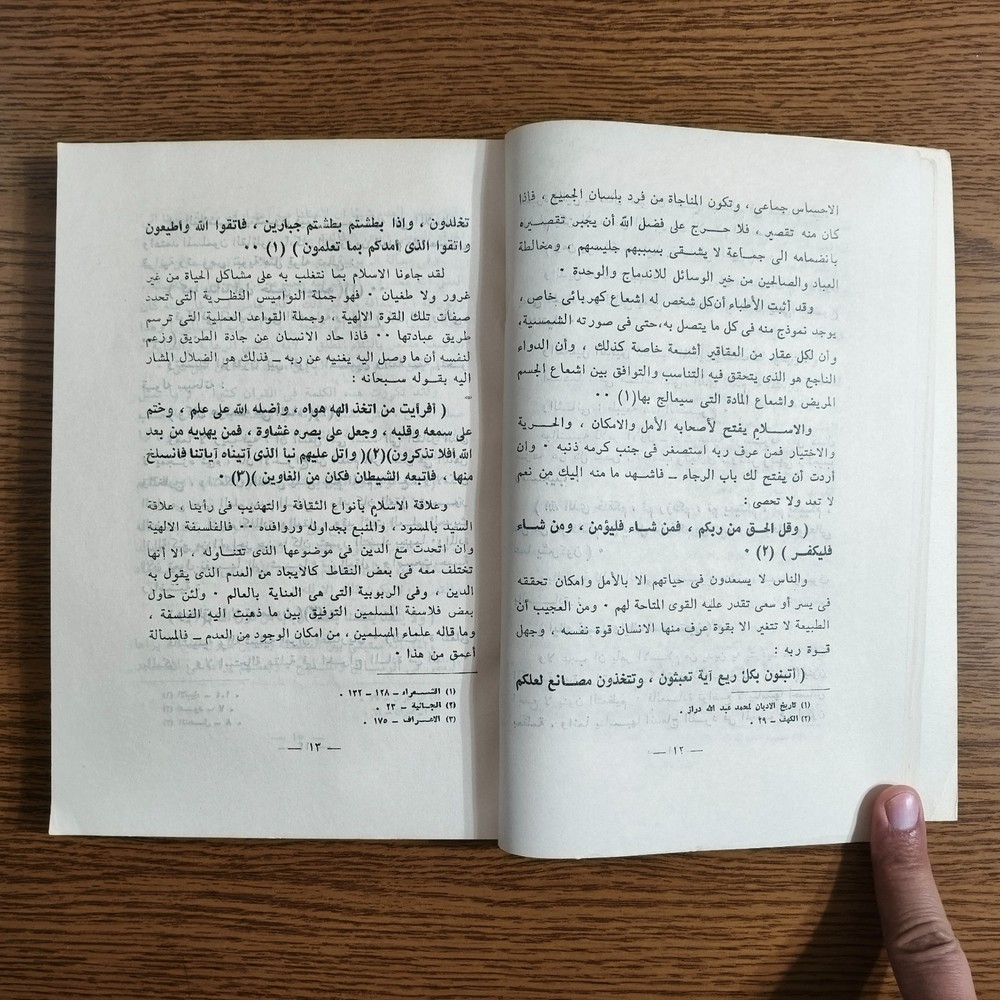 الاحساس جماعى ، وتكون المناجاة من فرد بلسان الجميع ، فاذا
كان منه تقصير ، فلا حرج على فضل الله أن يجبر تقصيره
بانضمامه الى جماعة لا يشقى بسببهم جليسهم ، ومخالطة
العباد والصالحين من خير الوسائل للاندماج والوحدة ٠
وقد أثبت الأطباء أن كل شخص له اشعاع كهربائى خاص ،
يوجد نموذج منه فى كل ما يتصل به، حتى فى صورته الشمسية،
وأن لكل عقار من العقاقير أشعة خاصة كذلك ، وأن الدواء
الناجع هو الذى يتحقق فيه التناسب والتوافق بين اشعاع الجسم
المريض واشعاع المادة التى سيعالج بها(١) ٠٠
والاسلام يفتح لأصحابه الأمل والامكان ، والحرية
والاختيار فمن عرف ربه استصغر فى جنب كرمه ذنبه ٠ وان
أردت أن يفتح لك باب الرجاء ــ فاشهد ما منه اليك من نعم
لا تعد ولا تحصى :
( وقل الحق من ربكم ، فمن شاء فليؤمن ، ومن شاء
فليكفر ) (٢) ٠
والناس لا يسعدون فى حياتهم الا بالأمل وامكان تحققه
فى يسر أو سعى تقدر عليه القوى المتاحة لهم ٠ ومن العجيب أن
الطبيعة لا تتغير الا بقوة عرف منها الانسان قوة نفسه ، وجهل
قوة ربه :
( أتبنون بكل ريع آية تعبثون ، وتتخذون مصانع لعلكم
(١) تاريخ الاديان لمحمد عبد الله دراز ٠
(٢) الكهف ــ ٢٩ ٠
ــ ١٢ ــ
تخلدون ، واذا بطشتم بطشتم جبارين ، فاتقوا الله وأطيعون
واتقوا الذى أمدكم بما تعلمون ) (١) ٠٠
لقد جاءنا الاسلام بما نتغلب به على مشاكل الحياة من غير
غرور ولا طغيان ٠ فهو جملة النواميس النظرية التى تحدد
صفات تلك القوة الالهية ، وجملة القواعد العملية التى ترسم
طريق عبادتها ٠٠ فاذا حاد الانسان عن جادة الطريق وزعم
لنفسه أن ما وصل اليه يغنيه عن ربه ــ فذلك هو الضلال المشار
اليه بقوله سبحانه :
( أفرأيت من اتخذ الهه هواه ، وأضله الله على علم ، وختم
على سمعه وقلبه ، وجعل على بصره غشاوة ، فمن يهديه من بعد
الله أفلا تذكرون)(٢)( واتل عليهم نبأ الذى آتيناه آياتنا فانسلخ
منها ، فأتبعه الشيطان فكان من الغاوين )(٣) ٠
وعلاقة الاسلام بأنواع الثقافة والتهذيب فى رأينا ، علاقة
السيد بالمسود ، والمنبع بجداوله وروافده ٠٠ فالفلسفة الالهية
وان اتحدت مع الدين فى موضوعها الذى تتناوله ، الا أنها
تختلف معه فى بعض النقاط كالايجاد من العدم الذى يقول به
الدين ، وفى الربوبية التى هى العناية بالعالم ٠ ولئن حاول
بعض فلاسفة المسلمين التوفيق بين ما ذهبت اليه الفلسفة ،
وما قاله علماء المسلمين ، من امكان الوجود من العدم ــ فالمسألة
أعمق من هذا ٠
(١) الشعراء ــ ١٢٨ ــ ١٣٢ ٠
(٢) الجاثية ــ ٢٣ ٠
(٣) الاعراف ــ ١٧٥ ٠
ــ ١٣ ــ